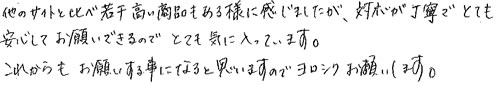 他のサイトと比べ若干高い商品もある様に感じましたが、対応が丁寧でとても
安心してお願いできるのでとても気に入っています。
これからもお願いする事になると思いますのでヨロシクお願いします。